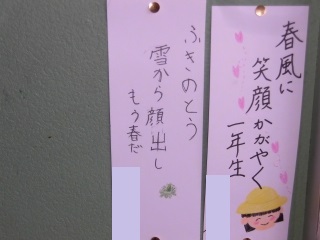 春風に
笑顔かがやく
一年生
ふきのとう
雪から顔出し
もう春だ